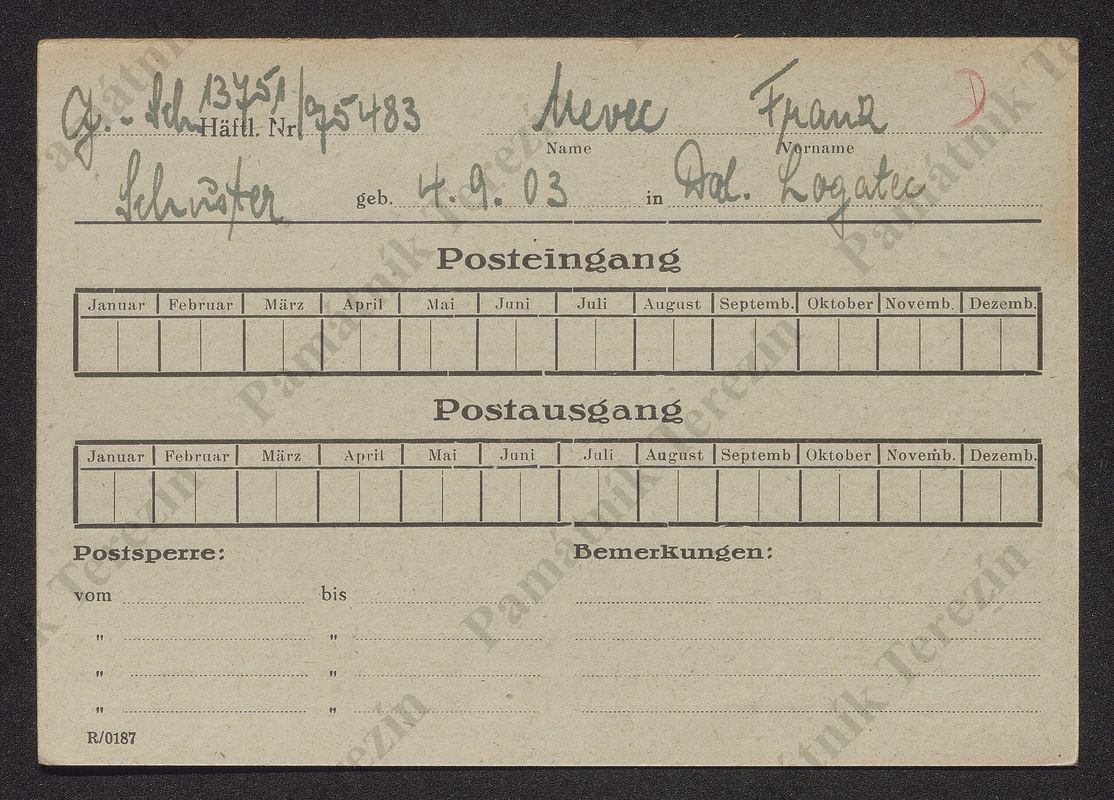 J. - Sch 13751/75483 Mevec Franz D
Häftl. Nr. Name Vorname
Schuster geb. 4.9.03 in Dol. Logatec
Posteingang
Januar Februar März April Mai Juni Juli August Septemb. Oktober Novemb. Dezemb.
Postausgang
Januar Februar März April Mai Juni Juli August Septemb Oktober Novemb. Dezemb.
Postsperre: Bemerkungen:
vom bis
" "
" "
" "
R/0187
Památník Terezín